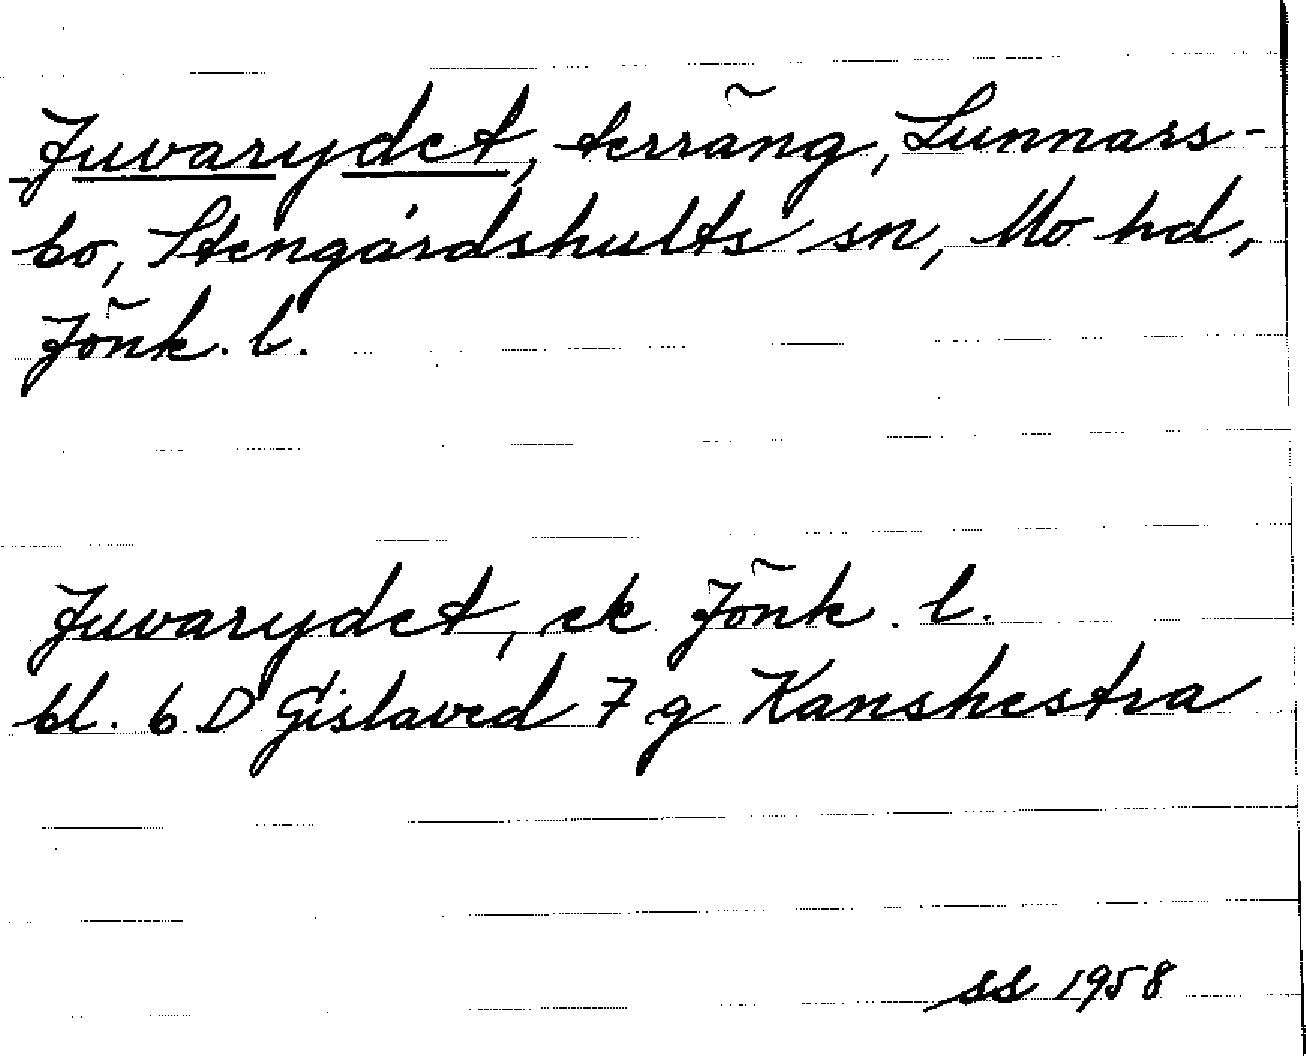 Juvarydet, terräng, Lunnars-
bo, Stengårdshults sn, Mo hd,
Jönk. l.
Juvarydet, ek Jönk. l.
bl. 6 D Gislaved 7 g Kanshestra
ss 1958